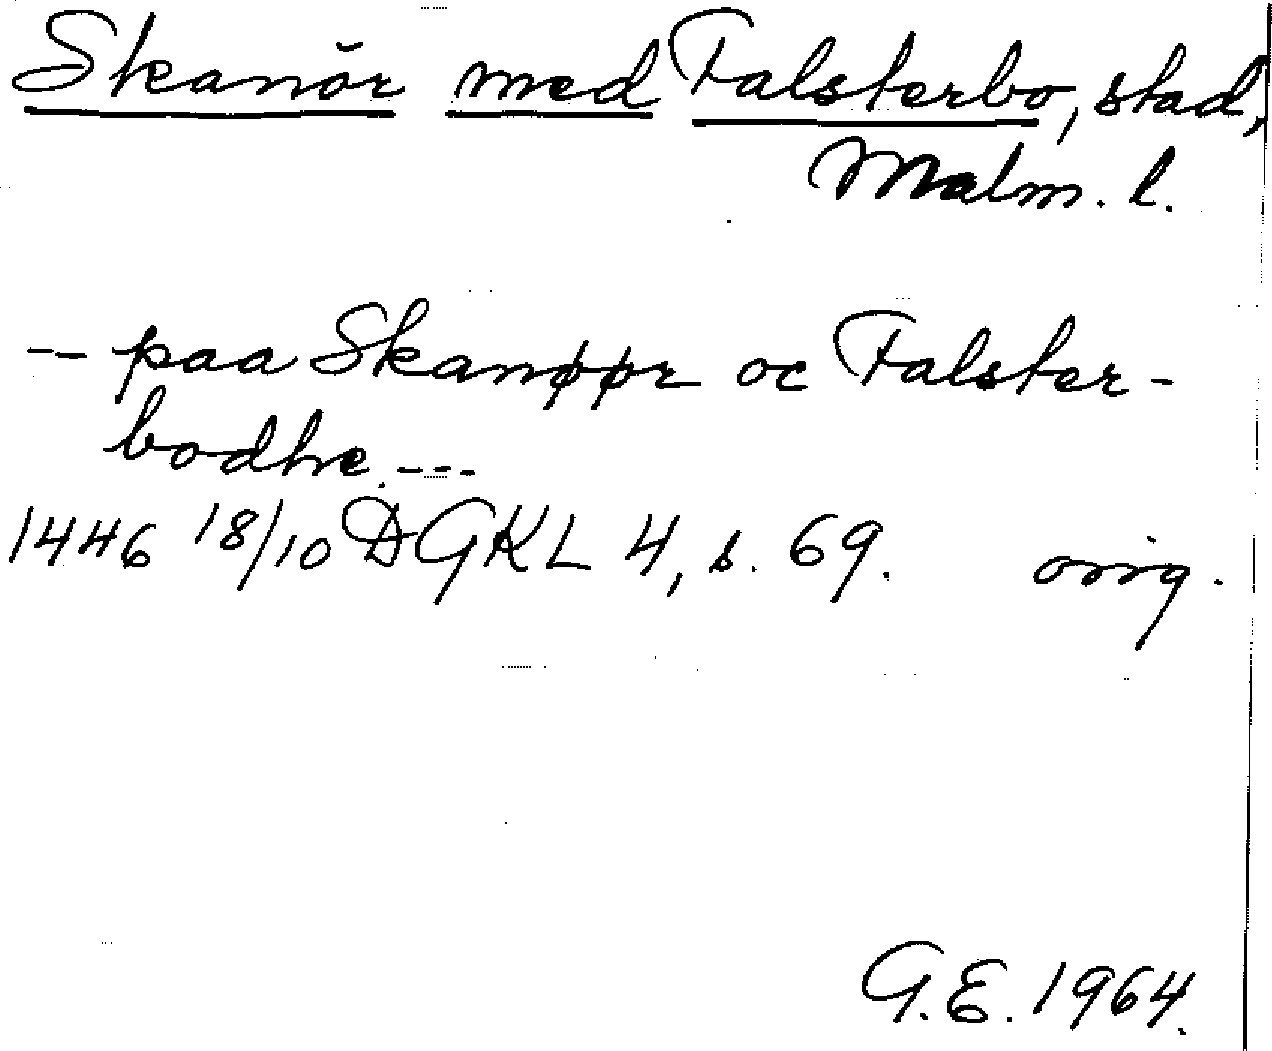 Skanör med Falsterbo, stad,
Malm. l.
-- paa Skanøør oc Falster-
bodhe ---
1446 18/10 DGKL 4, s. 69. orig.
G.E. 1964.